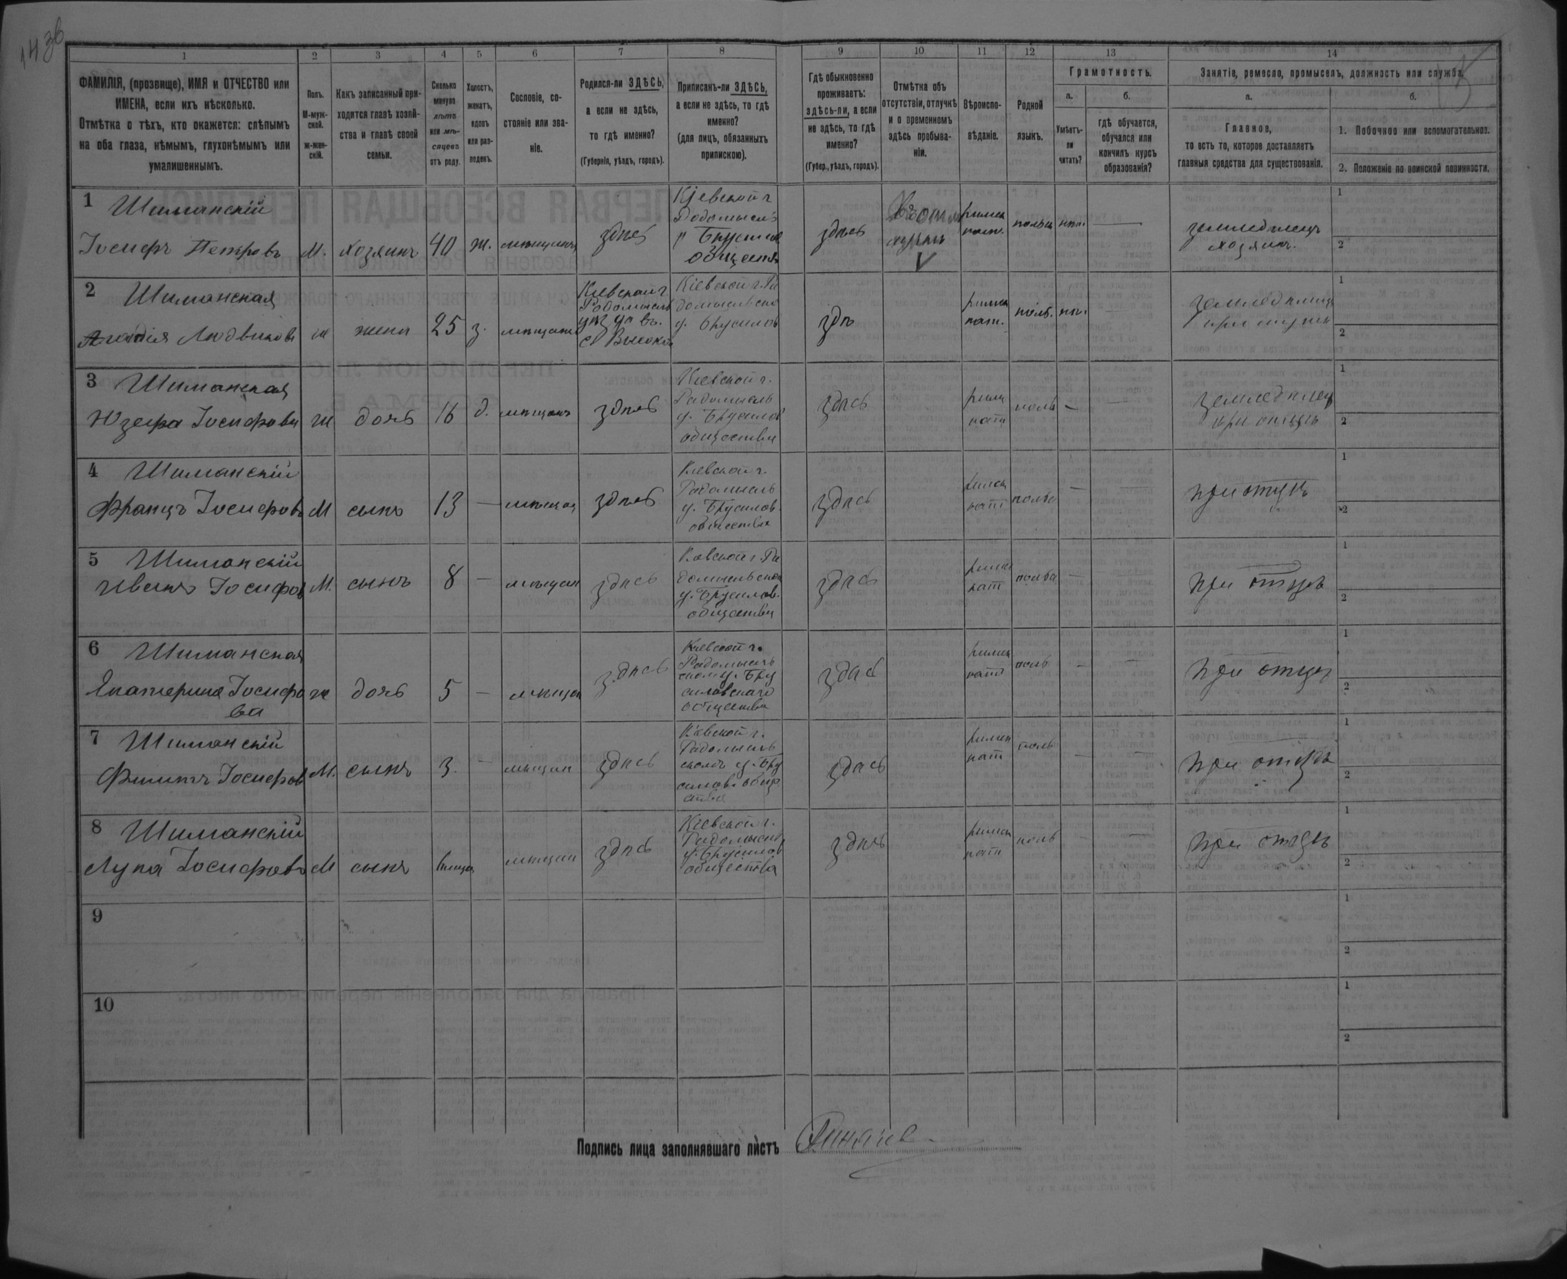 1 2 3 4 5 6 7 8 9 10 11 12 13 14
ФАМИЛІЯ, (прозвище), ИМЯ и ОТЧЕСТВО или
ИМЕНА, если ихъ нѣсколько.
Отмѣтка о тѣхъ, кто окажется: слѣпымъ
на оба глаза, нѣмымъ, глухонѣмымъ или
умалишеннымъ.
Полъ.
М-муж-
ской.
Ж-жен-
скій.
Какъ записанный при-
ходится главѣ хозяй-
ства и главѣ своей
семьи.
Сколько
минуло
лѣтъ
или мѣ-
сяцевъ
отъ роду.
Холостъ,
женатъ,
вдовъ
или раз-
веденъ.
Сословіе, со-
стояніе или зва-
ніе.
Родился-ли ЗДѢСЬ,
а если не здѣсь,
то гдѣ именно?
(Губернія, уѣздъ, городъ).
Приписанъ-ли ЗДѢСЬ,
а если не здѣсь, то гдѣ
именно?
(для лицъ, обязанныхъ
припискою).
Гдѣ обыкновенно
проживаетъ:
здѣсь-ли, а если
не здѣсь, то гдѣ
именно?
(Губер., уѣздъ, городъ).
Отмѣтка объ
отсутствіи, отлучкѣ
и о временномъ
здѣсь пребыва-
ніи.
Вѣроиспо-
вѣданіе.
Родной
языкъ.
Грамотность.
а.
Умѣетъ-
ли
читать?
б.
гдѣ обучается,
обучался или
кончилъ курсъ
образованія?
Занятіе, ремесло, промыселъ, должность или служба.
а.
Главное,
то есть то, которое доставляетъ
главныя средства для существованія.
б.
1. Побочное или вспомогательное.
2. Положеніе по воинской повинности.
1 Шиманскій
Іосифъ Петровъ М. хозяинъ 40 ж. мѣщанинъ здѣсь Кіевской г. Радомысл у Брусил обществ здѣсь римск катт польск земледѣлецъ хозяинъ
2 Шиманская
Людвикова ж жена 25 з. мѣщанк Кіевской г Радомысль Кіевской г Ра домысльско у. Брусилов здѣ римск кат. польс.
3 Шиманская
Юзефа Іосифова ж дочь 16 д. мѣщанк здѣсь Кіевской г. Радомысль у. Брусилов обществи здѣсь римск кат поль — — земледѣлец при отцѣ
4 Шиманскій
Францъ Іосифовъ М сынъ 13 — мѣщан здѣсь Кіевской г. Радомысль у. Брусилов. обществи здѣсь римск кат польс — — при отцѣ
5 Шиманскій
Иванъ Іосифов М. сынъ 8 — мѣщан здѣсь Кіевской г. Ра домысльско у. Брусилов. обществи здѣсь римск кат польс — — при отцѣ
6 Шиманская
Екатерина Іосифо
ва ж дочь 5 — мѣщан здѣсь Кіевской г. Радомысль ском у. Бру силовскаго общества здѣсь римск кат поль — — при отцѣ
7 Шиманскій
Филипъ Іосифов М. сынъ 3. — мѣщан здѣсь Кіевской г. Радомысль скомъ у. Бру силов. здѣсь римск кат поль — — при отцѣ
8 Шиманскій
Лука Іосифовъ М сынъ мѣщан здѣсь Кіевской г. Радомысль у. Брусилов общества здѣсь римск кат поль — — при отцѣ
9
10
Подпись лица заполнявшаго листъ